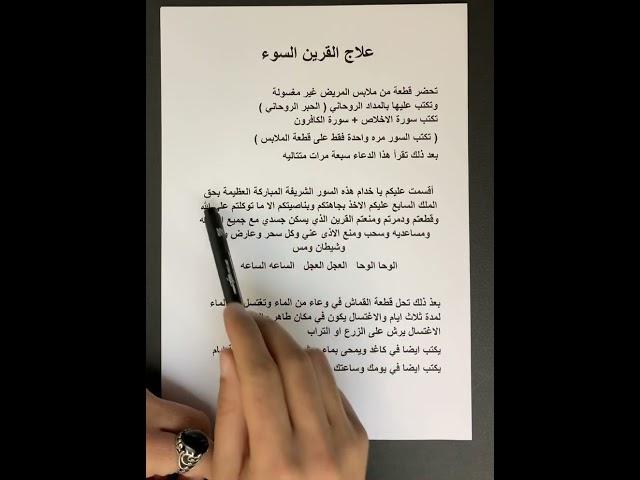 علاج القرين السوء
تحضر قطعة من ملابس المريض غير مغسولة
وتكتب عليها بالمداد الروحاني ( الحبر الروحاني )
تكتب سورة الاخلاص + سورة الكافرون
( تكتب السور مره واحدة فقط على قطعة الملابس )
بعد ذلك تقرأ هذا الدعاء سبعة مرات متتاليه
أقسمت عليكم يا خدام هذه السور الشريفة المباركة العظيمة بحق
الملك السابع عليكم الاخذ بجاهتكم وبناصيتكم الا ما توكلتم على الله
وقطعتم ودمرتم ومنعتم القرين الذي يسكن جسدي مع جميع
ومساعديه وسحب ومنع الاذى عني وكل سحر وعارض
وشيطان ومس
الوحا الوحا العجل العجل الساعه الساعه
بعذ ذلك تحل قطعة القماش في وعاء من الماء وتغتسل الماء
لمدة ثلاث ايام والاغتسال يكون في مكان طاهر
الاغتسال يرش على الزرع او التراب
يكتب ايضا في كاغد ويمحى بماء ايام
يكتب ايضا في يومك وساعتك